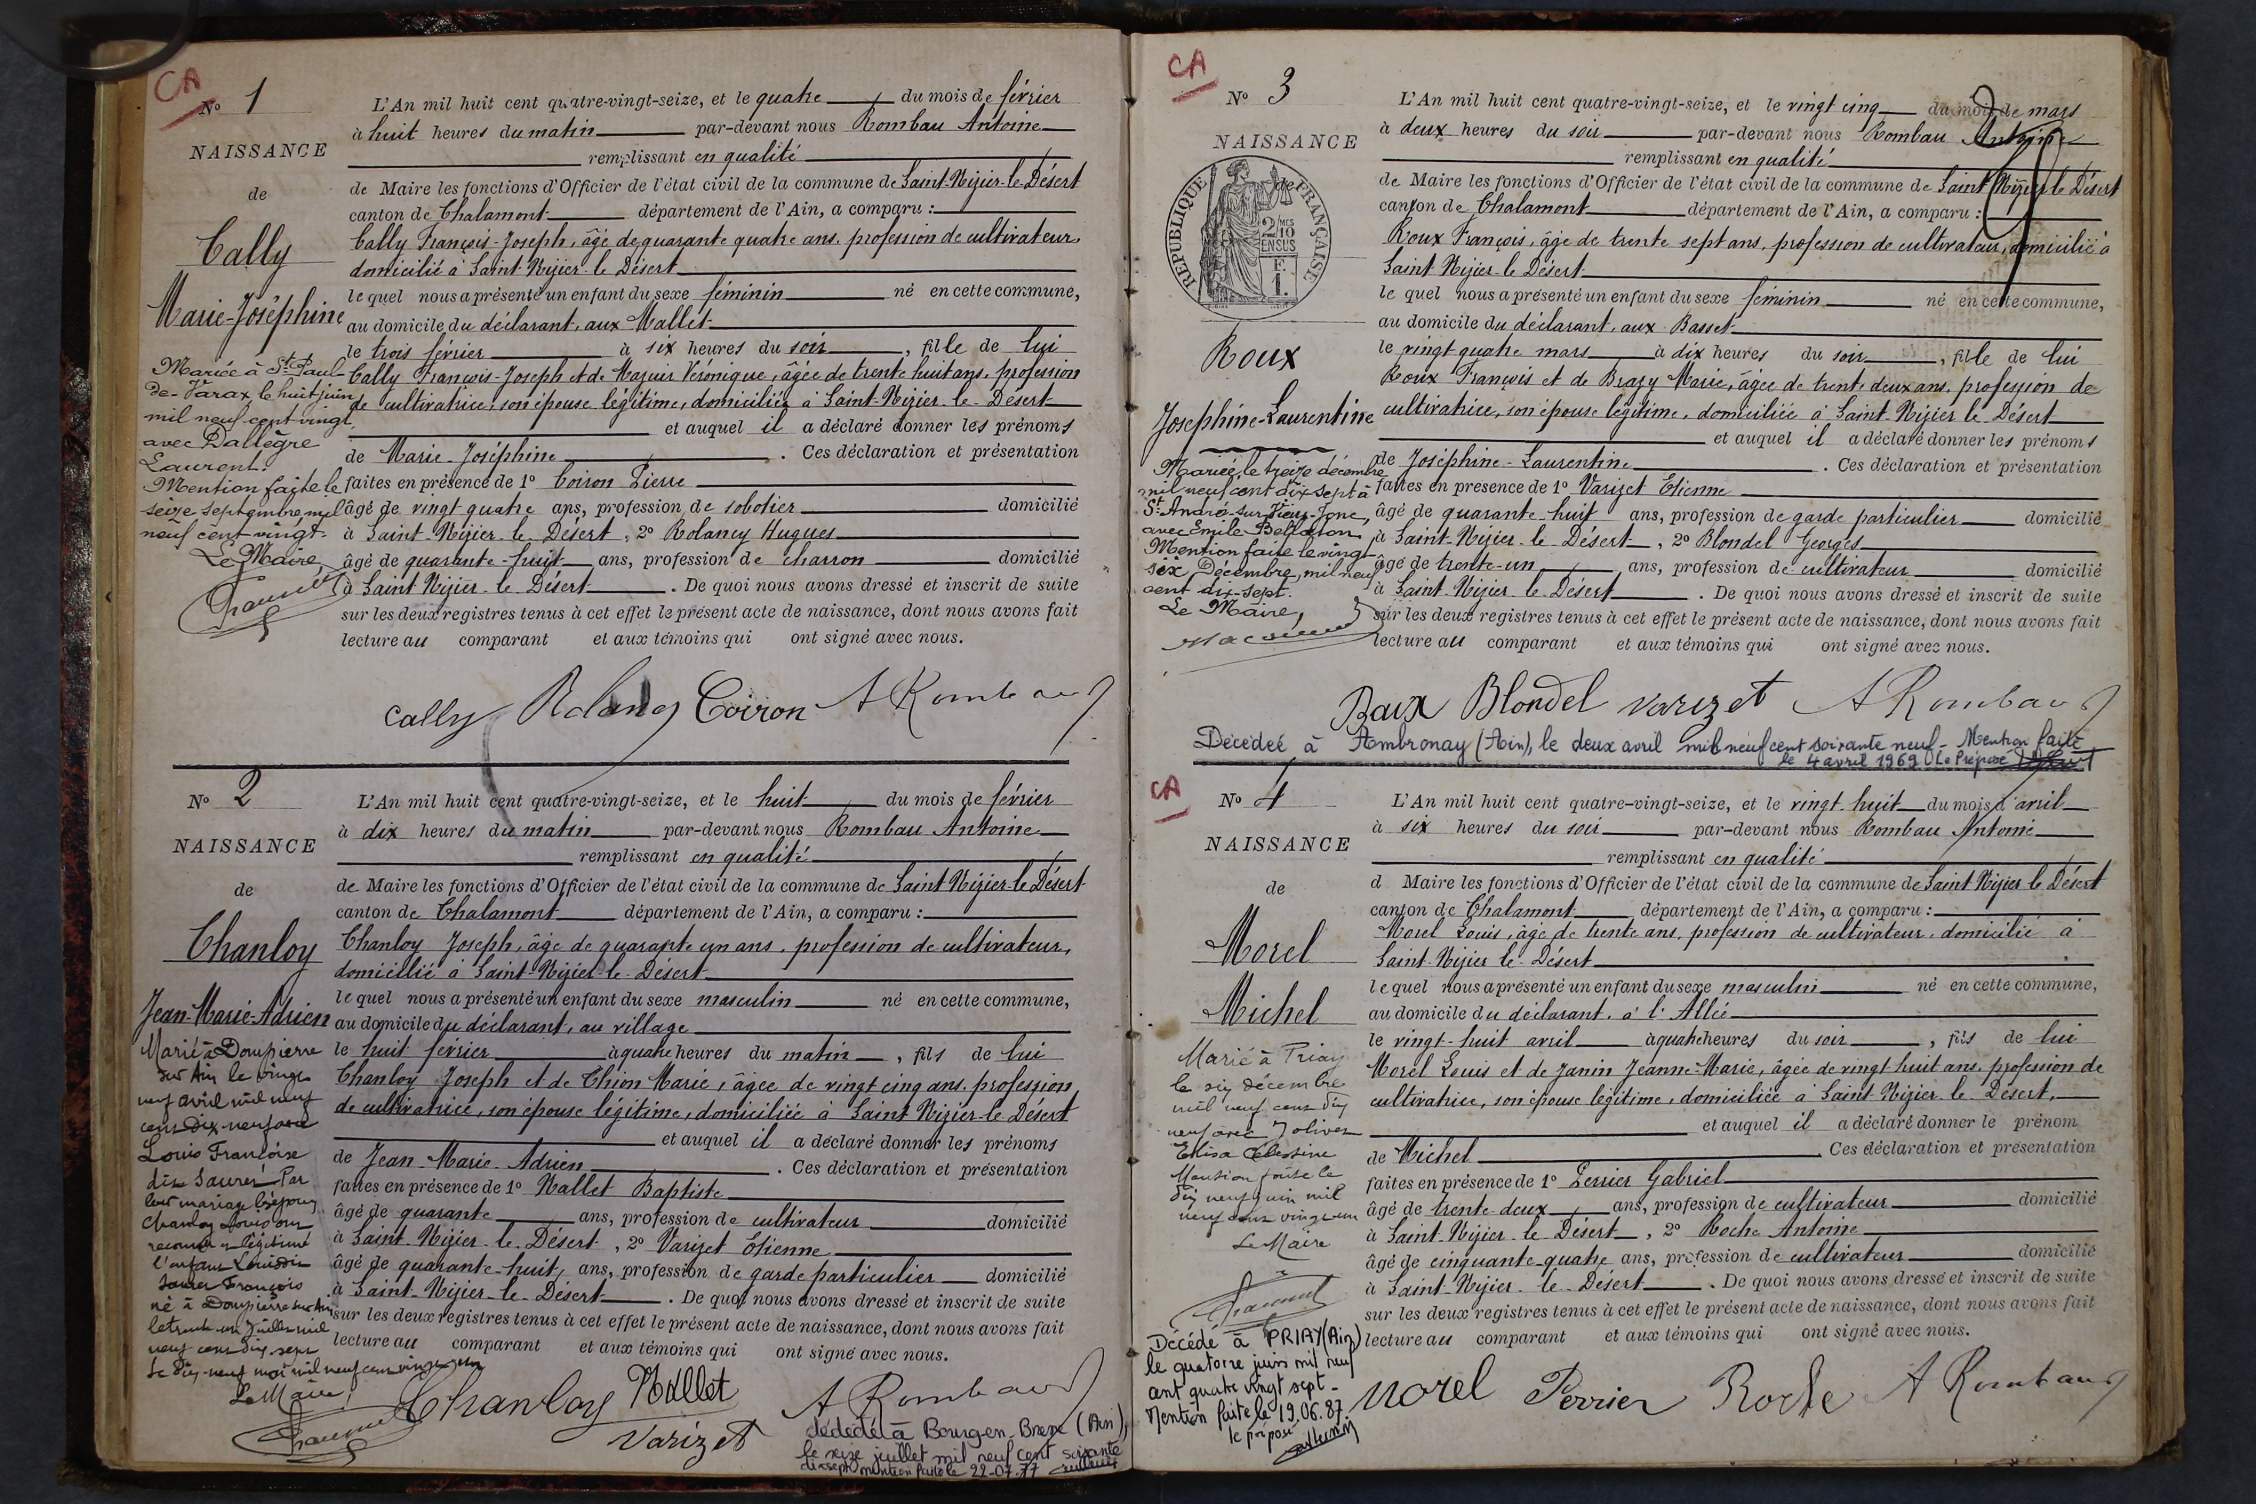 CA
N° 1
NAISSANCE
de
Cally
Marie-Joséphine
Mariée à St Paul-
de-Varax, le huit juin
mil neuf cent vingt
avec Dallègre
Laurent.
Mention faite le
seize septembre mil
neuf cent vingt.
Le Maire,
L'An mil huit cent quatre-vingt-seize, et le quatre du mois de février
à huit heures du matin par-devant nous Rombau Antoine
remplissant en qualité
de Maire les fonctions d'Officier de l'état civil de la commune de Saint-Nizier-le-Désert
canton de Chalamont département de l'Ain, a comparu :
Cally François-Joseph, âgé de quarante quatre ans, profession de cultivateur,
domicilié à Saint-Nizier-le Désert
le quel nous a présenté un enfant du sexe féminin né en cette commune,
au domicile du déclarant, aux Mallet
le trois février à six heures du soir, fille de lui
Cally François-Joseph et de Véronique, âgée de trente huit ans, profession
de cultivatrice, son épouse légitime, domiciliée à Saint-Nizier-le-Désert
et auquel il a déclaré donner les prénoms
de Marie-Joséphine. Ces déclaration et présentation
faites en présence de 1° Coiron Pierre
âgé de vingt quatre ans, profession de sabotier domicilié
à Saint-Nizier-le-Désert, 2° Rolancy Hugues
âgé de quarante-huit ans, profession de charron domicilié
à Saint Nizier-le-Désert. De quoi nous avons dressé et inscrit de suite
sur les deux registres tenus à cet effet le présent acte de naissance, dont nous avons fait
lecture au comparant et aux témoins qui ont signé avec nous.
Cally Coiron A Rombau
N° 2
NAISSANCE
de
Chanloy
Jean-Marie-Adrien
Marié à Dompierre
sur Ain le vingt
neuf avril mil neuf
cent dix-neuf avec
Louis Françoise
dite Saurer Par
leur mariage les époux
Chanloy Louis ont
reconnu et légitimé
l'enfant Louis dit
Saurer François
né à Dompierre sur Ain
le trente un Juillet mil
neuf cent dix sept
Le dix-neuf mai mil neuf cent vingt un
Le Maire,
L'An mil huit cent quatre-vingt-seize, et le huit du mois de février
à dix heures du matin par-devant nous Rombau Antoine
remplissant en qualité
de Maire les fonctions d'Officier de l'état civil de la commune de Saint-Nizier-le-Désert
canton de Chalamont département de l'Ain, a comparu :
Chanloy Joseph, âgé de quarante un ans, profession de cultivateur,
domicilié à Saint-Nizier-le-Désert
le quel nous a présenté un enfant du sexe masculin né en cette commune,
au domicile du déclarant, au village
le huit février à quatre heures du matin, fils de lui
Chanloy Joseph et de Chion Marie, âgée de vingt cinq ans, profession
de cultivatrice, son épouse légitime, domiciliée à Saint Nizier-le-Désert
et auquel il a déclaré donner les prénoms
de Jean-Marie-Adrien. Ces déclaration et présentation
faites en présence de 1° Mallet Baptiste
âgé de quarante ans, profession de cultivateur domicilié
à Saint-Nizier-le-Désert, 2° Varizet Etienne
âgé de quarante-huit ans, profession de garde particulier domicilié
à Saint-Nizier-le-Désert. De quoi nous avons dressé et inscrit de suite
sur les deux registres tenus à cet effet le présent acte de naissance, dont nous avons fait
lecture au comparant et aux témoins qui ont signé avec nous.
Chanloy Mallet
Varizet A Rombau
décédé à Bourg-en-Bresse (Ain),
le seize juillet mil neuf cent soixante
dix sept mention faite le 22-07-77
CA
N° 3
NAISSANCE
de
RÉPUBLIQUE FRANÇAISE
2/10
EN SUS
Roux
Joséphine-Laurentine
Mariée, le treize décembre
mil neuf cent dix sept à
St André-sur-Vieux-Jonc,
avec Emile
Mention faite le vingt
six Décembre, mil neuf
cent dix-sept.
Le Maire,
L'An mil huit cent quatre-vingt-seize, et le vingt cinq du mois de mars
à deux heures du soir par-devant nous Rombau Antoine
remplissant en qualité
de Maire les fonctions d'Officier de l'état civil de la commune de Saint Nizier le Désert
canton de Chalamont département de l'Ain, a comparu :
Roux François, âgé de trente sept ans, profession de cultivateur, domicilié à
Saint Nizier-le Désert
le quel nous a présenté un enfant du sexe féminin né en cette commune,
au domicile du déclarant, aux Basset
le vingt quatre mars à dix heures du soir, fille de lui
Roux François et de Brazy Marie, âgée de trente deux ans, profession de
cultivatrice, son épouse légitime, domiciliée à Saint-Nizier le Désert
et auquel il a déclaré donner les prénoms
de Joséphine-Laurentine. Ces déclaration et présentation
faites en présence de 1° Varizet Etienne
âgé de quarante-huit ans, profession de garde particulier domicilié
à Saint-Nizier-le-Désert, 2° Blondel Georges
âgé de trente-un ans, profession de cultivateur domicilié
à Saint Nizier-le-Désert. De quoi nous avons dressé et inscrit de suite
sur les deux registres tenus à cet effet le présent acte de naissance, dont nous avons fait
lecture au comparant et aux témoins qui ont signé avec nous.
Roux Blondel Varizet A Rombau
Décédée à Ambronay (Ain), le deux avril mil neuf cent soixante neuf - Mention faite
le 4 avril 1969 Le Préposé
CA
N° 4
NAISSANCE
de
Morel
Michel
Marié à Priay
le six décembre
mil neuf cent dix
neuf avec Jolivet
Elisa Célestine
Mention faite le
dix neuf juin mil
neuf cent vingt un
Le Maire
Décédé à PRIAY (Ain)
le quatorze juin mil neuf
cent quatre vingt sept -
Mention faite le 19.06.87.
le préposé
L'An mil huit cent quatre-vingt-seize, et le vingt-huit du mois d'avril
à six heures du soir par-devant nous Rombau Antoine
remplissant en qualité
d Maire les fonctions d'Officier de l'état civil de la commune de Saint Nizier le Désert
canton de Chalamont département de l'Ain, a comparu :
Morel Louis, âgé de trente ans, profession de cultivateur, domicilié à
Saint-Nizier le-Désert
le quel nous a présenté un enfant du sexe masculin né en cette commune,
au domicile du déclarant, à l'Allée
le vingt-huit avril à quatre heures du soir, fils de lui
Morel Louis et de Janin Jeanne-Marie, âgée de vingt huit ans, profession de
cultivatrice, son épouse légitime, domiciliée à Saint Nizier-le-Désert,
et auquel il a déclaré donner le prénom
de Michel Ces déclaration et présentation
faites en présence de 1° Perrier Gabriel
âgé de trente-deux ans, profession de cultivateur domicilié
à Saint-Nizier-le Désert, 2° Roche Antoine
âgé de cinquante-quatre ans, profession de cultivateur domicilié
à Saint-Nizier-le-Désert. De quoi nous avons dressé et inscrit de suite
sur les deux registres tenus à cet effet le présent acte de naissance, dont nous avons fait
lecture au comparant et aux témoins qui ont signé avec nous.
Morel Perrier Roche A Rombau